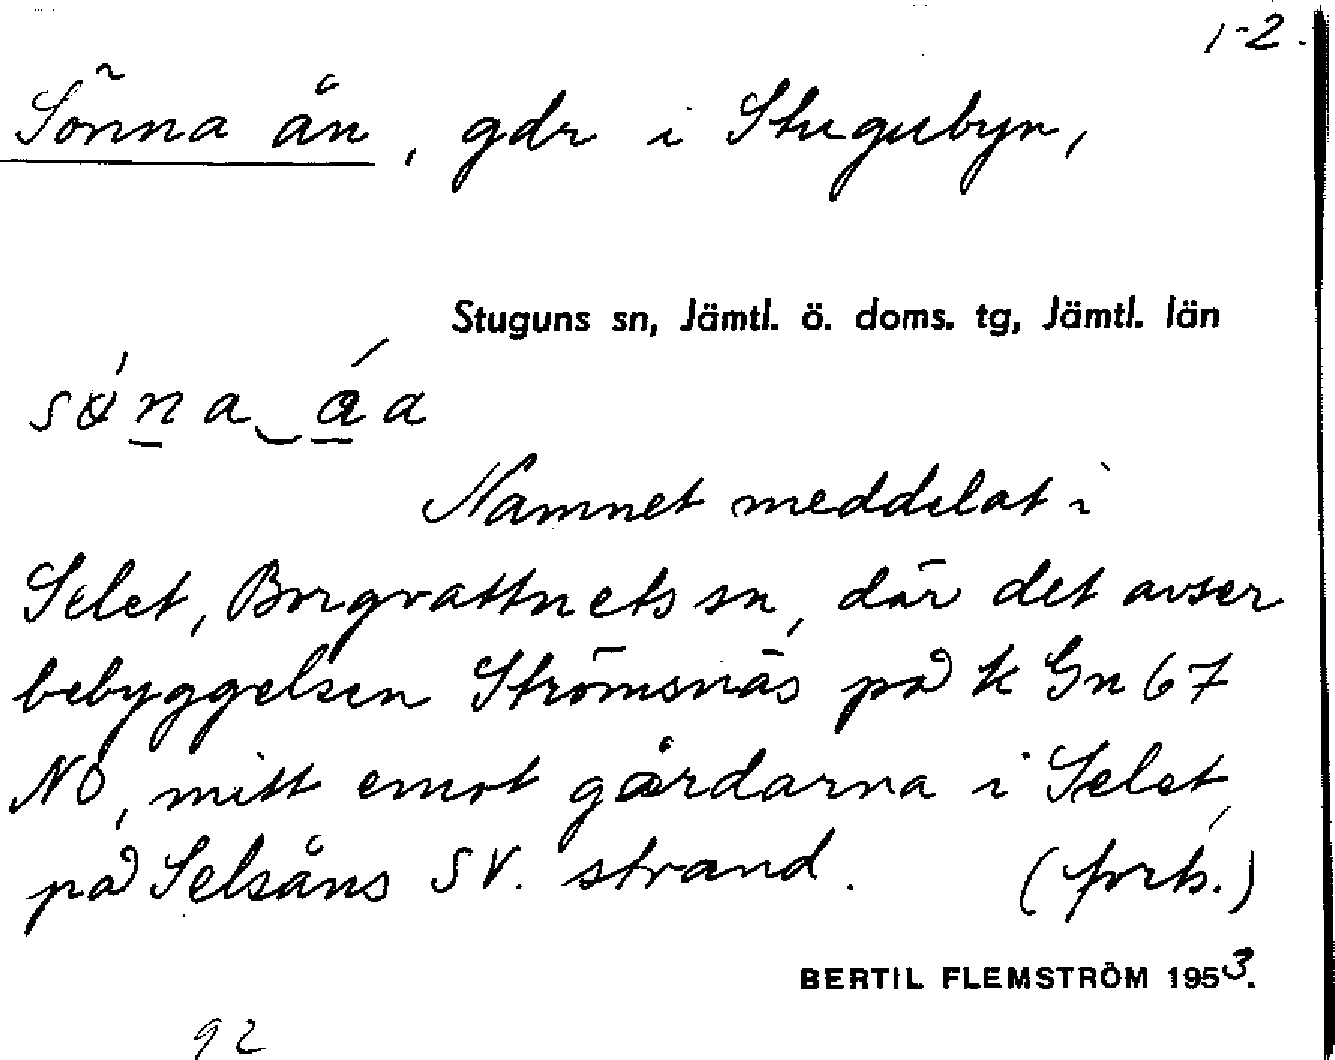 1-2.
Sönna ån, gdr i Stugubyn,
Stuguns sn, Jämtl. ö. doms. tg, Jämtl. län
Namnet meddelat i
Selet, Borgvattnets sn, där det avser
bebyggelsen Strömsnäs på k Gn 67
NO, mitt emot gårdarna i Selet,
på Selsåns SV. strand. (forts.)
BERTIL FLEMSTRÖM 1953.
92